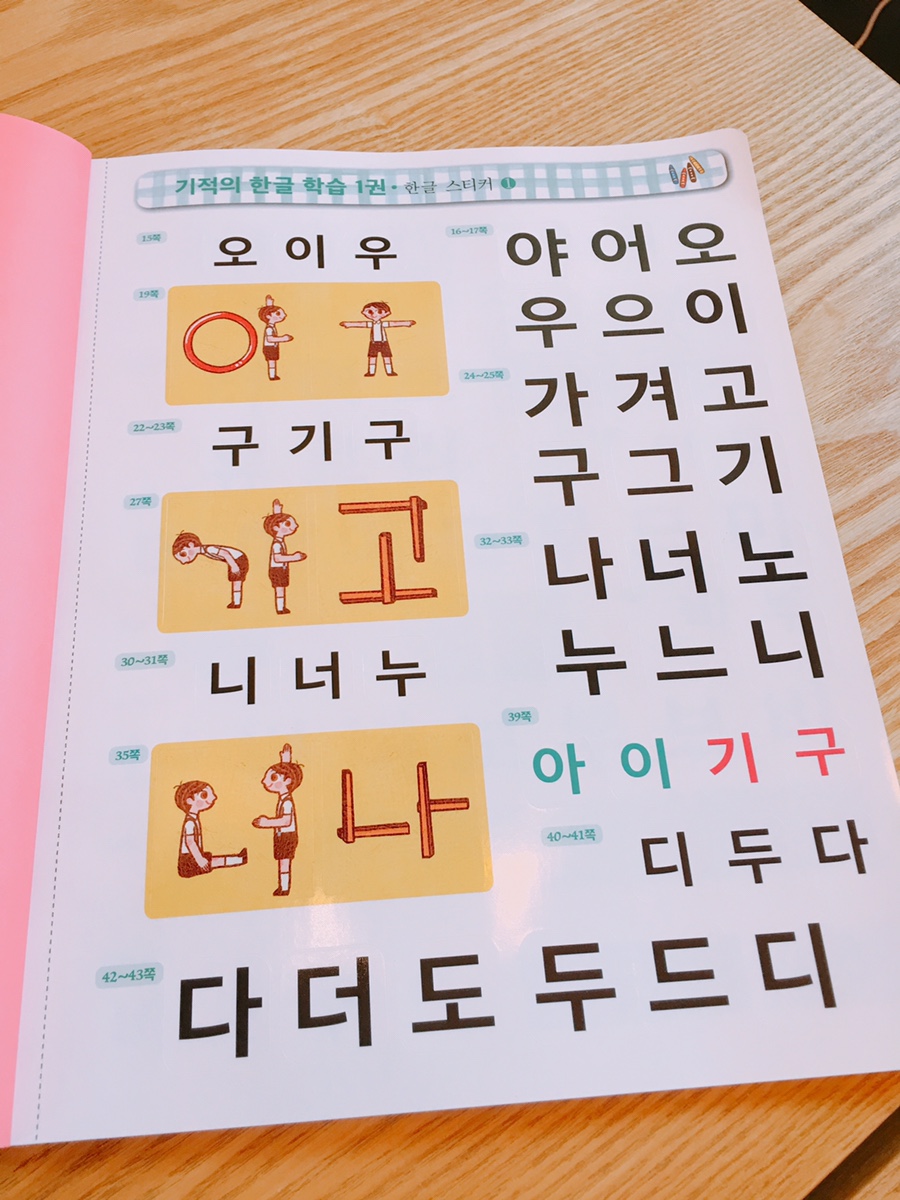 기적의 한글 학습 1권 • 한글 스티커 1
15쪽
오 이 우
19쪽
22~23쪽
구 기 구
27쪽
고
30~31쪽
니 너 누
35쪽
나
16~17쪽
야 어 오
우 으 이
24~25쪽
가 겨 고
구 그 기
32~33쪽
나 너 노
누 느 니
39쪽
아 이 기 구
40~41쪽
디 두 다
42~43쪽
다 더 도 두 드 디